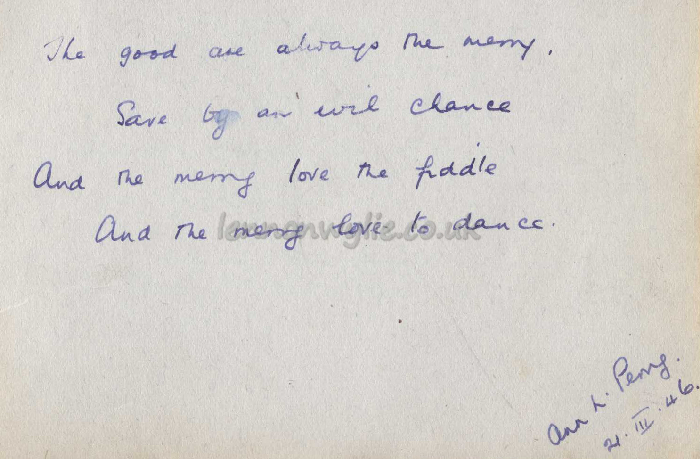 The good are always the merry,
Save by an evil chance
And the merry love the fiddle
And the merry love to dance.
Ann L. Perry.
21. III. 46.